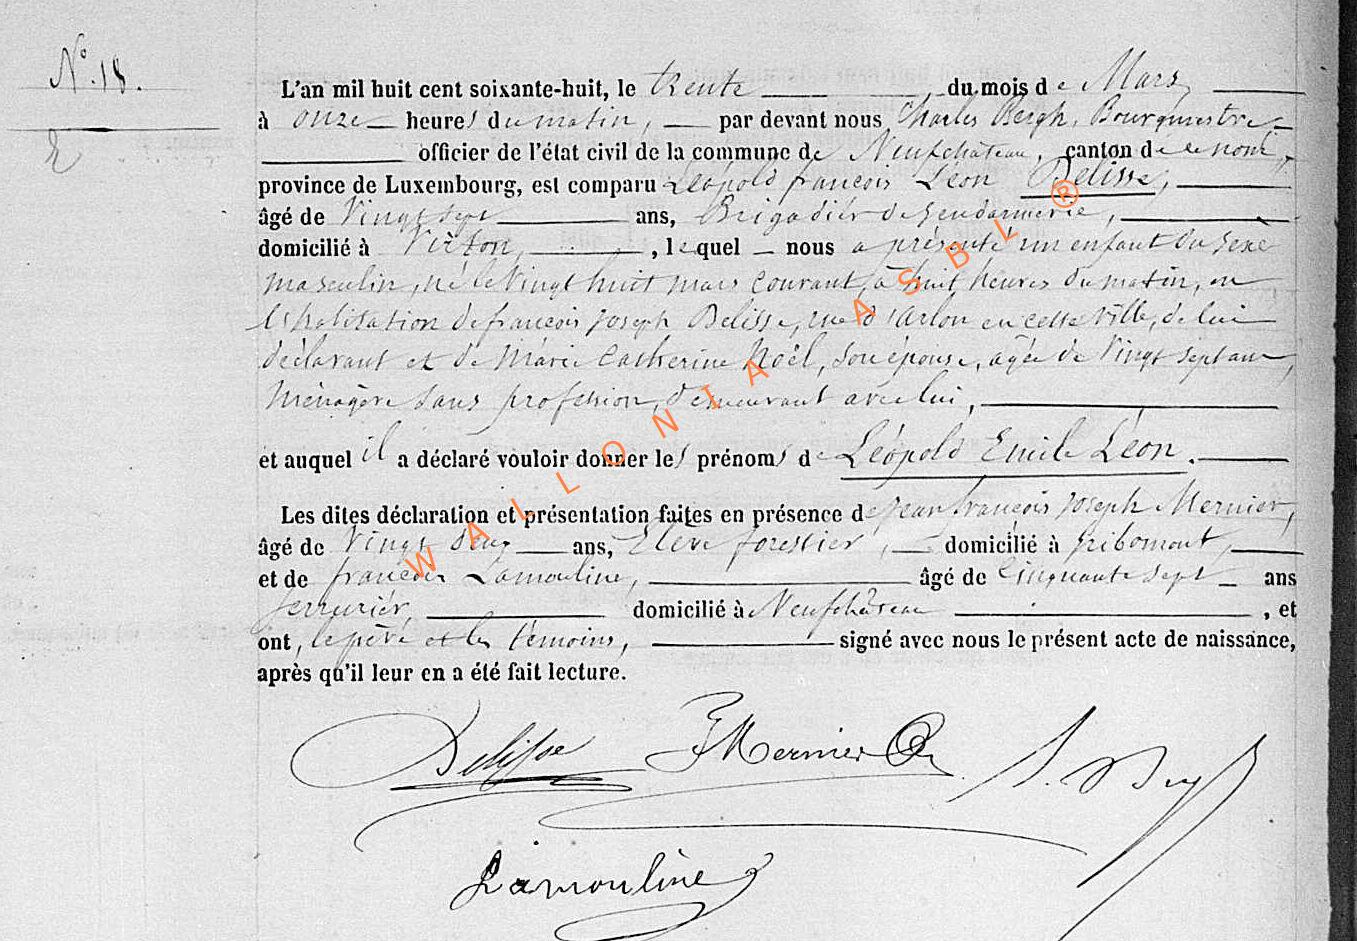 N° 18.
L'an mil huit cent soixante-huit, le trente du mois de Mars
à onze heures du matin, par devant nous Charles Bergh, Bourgmestre,
officier de l'état civil de la commune de Neufchâteau, canton de ce nom,
province de Luxembourg, est comparu Léopold françois Léon Delisse,
âgé de Vingt sept ans, Brigadier de Gendarmerie,
domicilié à Virton, , lequel nous a présenté un enfant du sexe
masculin, né le Vingt huit mars courant, à huit heures du matin, en
l'habitation de françois Joseph Delisse, rue d'Arlon en cette Ville, de lui
déclarant et de Marie Catherine Noël, son épouse, agée de Vingt sept ans,
Ménagère sans profession, demeurant avec lui,
et auquel il a déclaré vouloir donner les prénoms de Léopold Emile Léon.
Les dites déclaration et présentation faites en présence de Jean françois Joseph Mernier,
âgé de Vingt deux ans, Elève forestier, domicilié à Gribomont,
et de françois Lamouline, âgé de Cinquante sept ans
serrurier, domicilié à Neufchâteau , et
ont, le père et les témoins, signé avec nous le présent acte de naissance,
après qu'il leur en a été fait lecture.
Delisse Mernier
Lamouline
WALLONIA ASBL ®